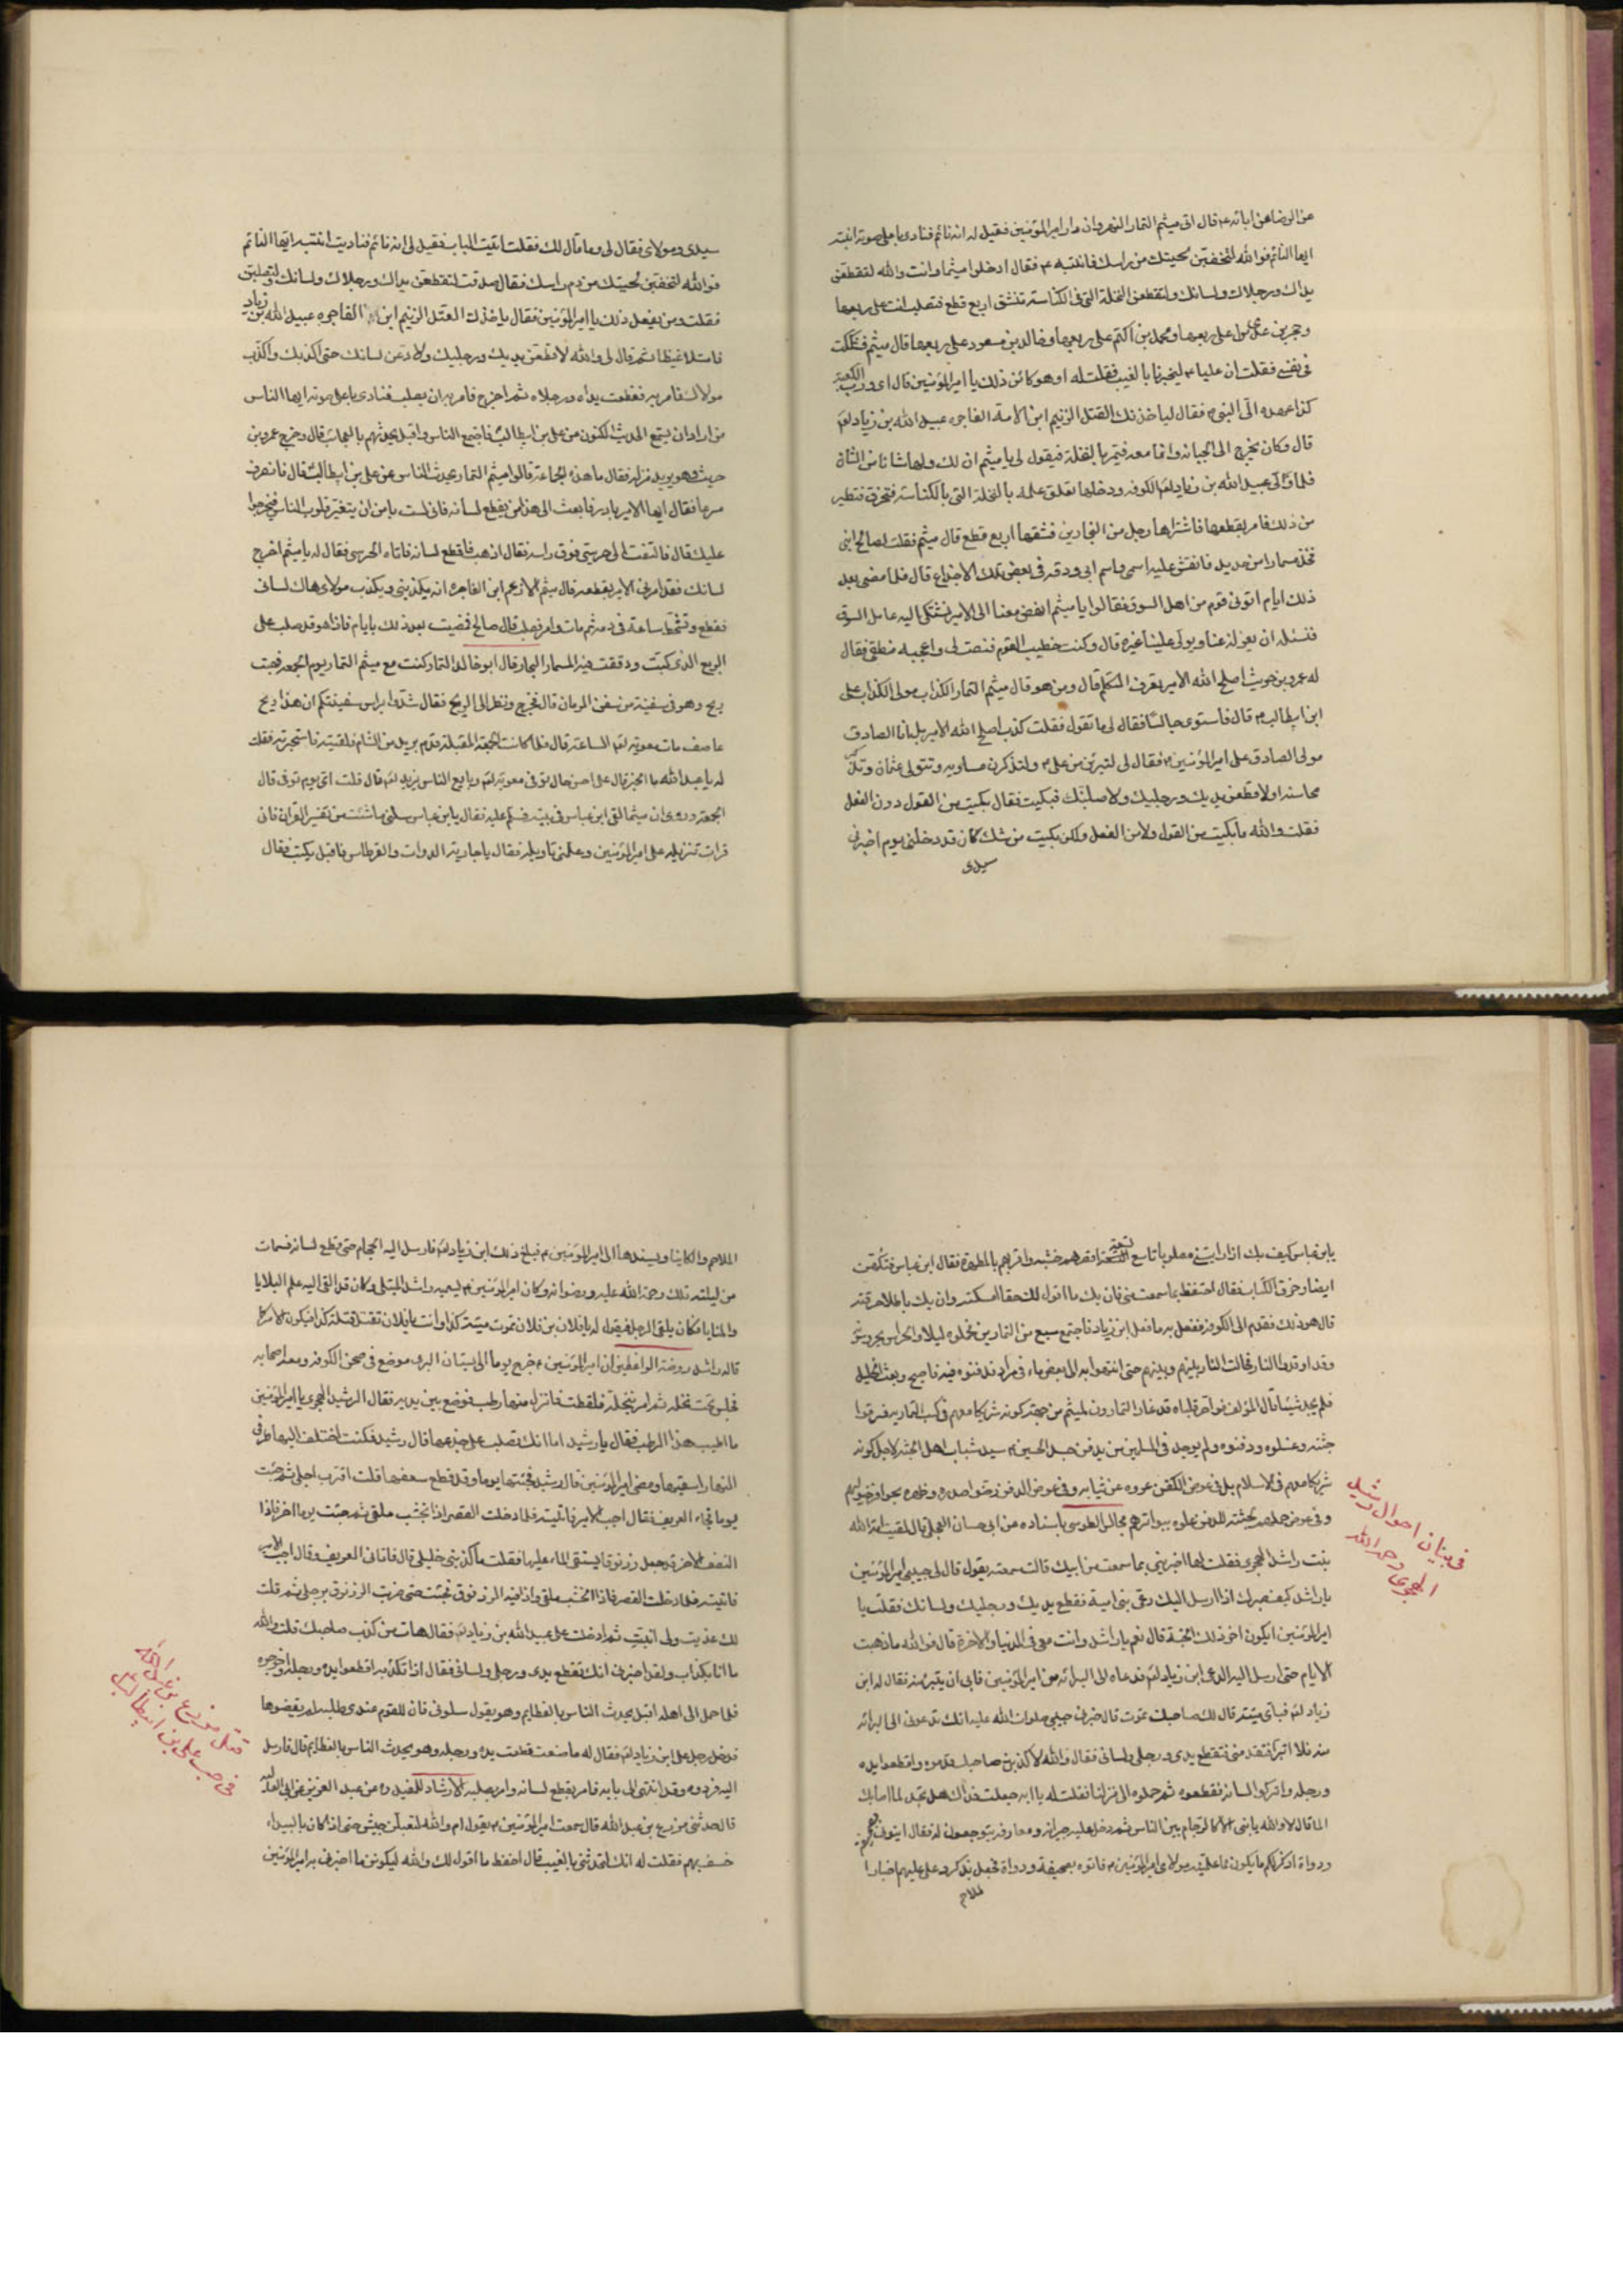 عن الرضا عن ابائه ع قال اتى ميثم التمار النهروان دار امير المؤمنين فقيل له انه نائم فنادى باعلى صوته انتبه
ايها النائم فوالله لتخضبن لحيتك من راسك فانتبه ع فقال ادخلوا ميثما وانت والله لتقطعن
يداك ورجلاك ولسانك ولتقطعن النخلة التى فى الكناسة تنشق اربع قطع فتصلب انت على ربعها
وحجر بن عدى على ربعها ومحمد بن اكثم على ربعها وخالد بن مسعود على ربعها قال ميثم فشككت
فى نفسى فقلت ان عليا ع ليخبرنا بالغيب فقلت له اوهو كائن ذلك يا امير المؤمنين قال اى ورب الكعبة
كذا عهده الى النبى ص فقال لياخذنك العتل الزنيم ابن الامة الفاجره عبيد الله بن زياد لعه
قال وكان يخرج الى الجبانه وانا معه فيمر بالنخلة فيقول لى يا ميثم ان لك ولها شانا من الشان
فلما ولى عبيد الله بن زياد لعه الكوفه ودخلها تعلق علمه بالنخلة التى بالكناسة فتخرق فتطير
من ذلك فامر بقطعها فاشتراها رجل من النجارين فشقها اربع قطع قال ميثم فقلت لصالح ابنى
فخذ مسمارا من حديد فانقش عليه اسمى واسم ابى ودقه فى بعض تلك الاجذاع قال فلما مضى بعد
ذلك ايام اتونى قوم من اهل السوق فقالوا يا ميثم انهض معنا الى الامير نشتكى اليه عامل السوق
فنسئله ان يعزله عنا ويولى علينا غيره قال وكنت خطيب القوم فنصت لى واعجبه منطقى فقال
له عمرو بن حريث اصلح الله الامير تعرف المتكلم قال ومن هو قال ميثم التمار الكذاب مولى الكذاب على
ابن ابيطالب ع قال فاستوى جالسا فقال لى ما تقول فقلت كذب اصلح الله الامير بل انا الصادق
مولى الصادق على امير المؤمنين ع فقال لى لتبرئن من على ع ولتذكرن مساويه وتتولى عثمان وتذكر
محاسنه اولاقطعن يديك ورجليك ولاصلبنك فبكيت فقال بكيت من القول دون الفعل
فقلت والله ما بكيت من القول ولا من الفعل ولكن بكيت من شك كان قد دخلنى يوم اخبرنى
سيدى
سيدى ومولاى فقال لى وما قال لك فقلت اتيت الباب فقيل لى انه نائم فناديت انتبه ايها النائم
فوالله لتخضبن لحيتك من دم راسك فقال صدقت لتقطعن يداك ورجلاك ولسانك ولتصلبن
فقلت ومن يفعل ذلك يا امير المؤمنين فقال ياخذك العتل الزنيم ابن الفاجره عبيد الله بن زياد
فامتلا غيظا ثم قال لى والله لاقطعن يديك ورجليك ولادعن لسانك حتى اكذبك واكذب
مولاك فامر به فقطعت يداه ورجلاه ثم اخرج فامر به ان يصلب فنادى باعلى صوته ايها الناس
من اراد ان يسمع الحديث المكنون من على بن ابيطالب فاجتمع الناس واقبل يحدثهم بالعجائب قال وخرج عمرو بن
حريث وهو يريد منزله فقال ما هذه الجماعة قالوا ميثم التمار يحدث الناس عن على بن ابيطالب قال فانصرف
مسرعا فقال ايها الامير بادر فابعث الى هذا من يقطع لسانه فانى لست بامن ان يتغير قلوب الناس فيخرجوا
عليك قال فالتفت الى حرسى فوق راسه فقال اذهب فاقطع لسانه فاتاه الحرسى فقال له يا ميثم اخرج
لسانك فقد امرنى الامير بقطعه قال ميثم الا زعم ابن الفاجره انه يكذبنى ويكذب مولاى هاك لسانى
فقطع وتشحط ساعة فى دمه ثم مات وامر به فصلب قال صالح فمضيت بعد ذلك بايام فاذا هو قد صلب على
الربع الذى كتبت ودققت فيه المسمار البحار قال ابو خالد التمار كنت مع ميثم التمار يوم الجمعه فهبت
ريح وهو فى سفينة من سفن الرمان قال فخرج ونظر الى الريح فقال شدوا براس سفينتكم ان هذا ريح
عاصف مات معويه لعه الساعة قال فلما كانت الجمعة المقبلة قدم بريد من الشام فلقيته فاستخبرته فقلت
له يا عبد الله ما الخبر قال على احسن حال توفى معويه لعه وبايع الناس يزيد لعه قال قلت اى يوم توفى قال
الجمعة وروى ان ميثما لقى ابن عباس فى بيته فسلم عليه فقال يا بن عباس سلنى ما شئت من تفسير القران فانى
قرات تنزيله على امير المؤمنين وعلمنى تاويله فقال يا جاريه الدوات والقرطاس فاقبل يكتب فقال
يا بن عباس كيف بك اذا رايتنى مصلوبا تاسع تسعة اقصرهم خشبه واقربهم بالمطهرة فقال ابن عباس وتتكهن
ايضا وخرق الكتاب فقال احتفظ بما سمعت منى فان يك ما اقول لك حقا امسكته وان يك باطلا خرقته
قال هو ذلك فقدم الى الكوفه ففعل به ما فعل ابن زياد فاجتمع سبع من التمارين فحملوه ليلا والحراس يحرسونه
وقد اوقدوا النار فحالت النار بينهم وبينهم حتى انتهوا به الى بعض ماء فى مراد فدفنوه فيه فاصبح وبعث الخيل
فلم يجد شيئا قال المؤلف فواحر قلباه قد غار التمارون لميثم من جهة كونه شريكا معهم فى كسب التماريه فسرقوا
جثته وغسلوه ودفنوه ولم يوجد فى المسلمين من يدفن جسد الحسين ع سيد شباب اهل الجنه لاجل كونه
شريكا معهم فى الاسلام بل فى عوض الكفن عروه عن ثيابه وفى عوض الدفن رضوا صدره وظهره بحوافر خيولهم
وفى عوض حملهم لجثته للدفن علوه ببواترهم مجالس الطوسى باسناده عن ابى حسان العجلى قال لقيت امة الله
بنت راشد الهجرى فقلت لها اخبرينى بما سمعت من ابيك قالت سمعته يقول قال لى حبيبى امير المؤمنين
يا راشد كيف صبرك اذا ارسل اليك دعى بنى امية فقطع يديك ورجليك ولسانك فقلت يا
امير المؤمنين ايكون اخر ذلك الجنة قال نعم يا راشد وانت معى فى الدنيا والاخرة قال فوالله ما ذهبت
الايام حتى ارسل اليه الدعى ابن زياد لعه فدعاه الى البرائه من امير المؤمنين فابى ان يتبرء منه فقال له ابن
زياد لعه فباى ميتة قال لك صاحبك تموت قال خبرنى حبيبى صلوات الله عليه انك تدعونى الى البرائه
منه فلا اتبرا فتقدمنى فتقطع يدى ورجلى ولسانى فقال والله لاكذبن صاحبك قدموه واقطعوا يده
ورجله واتركوا لسانه فقطعوه ثم حملوه الى منزلنا فقلت له يا ابه جعلت فداك هل تجد لما اصابك
الما قال لا والله يا بنى الا كالزحام بين الناس ثم دخل عليه جيرانه ومعارفه يتوجعون له فقال ايتونى بصحيفة
ودواة اذكر لكم ما يكون مما علمنيه مولاى امير المؤمنين ع فاتوه بصحيفة ودواة فجعل يذكر ويملى عليهم اخبار
الملاحم
فى بيان احوال رشيد
الهجرى رحمه الله
الملاحم والكاينات ويسندها الى امير المؤمنين ع فبلغ ذلك ابن زياد لعه فارسل اليه الحجام حتى قطع لسانه فمات
من ليلته تلك رحمة الله عليه ورضوانه وكان امير المؤمنين ع يسميه راشد المبتلى وكان قد القى اليه علم البلايا
والمنايا فكان يلقى الرجل فيقول له يا فلان بن فلان تموت ميتة كذا وانت يا فلان تقتل قتلة كذا فيكون الامر كما
قاله راشد روضة الواعظين ان امير المؤمنين ع خرج يوما الى بستان البرى موضع فى صحن الكوفه ومعه اصحابه
فجلس تحت نخله ثم امر بنخلة فلقطت فانزل منها رطب فوضع بين يديه فقال الرشيد الهجرى يا امير المؤمنين
ما اطيب هذا الرطب فقال يا رشيد اما انك تصلب على جذعها قال رشيد فكنت اختلف اليها طرفى
النهار اسقيها ومضى امير المؤمنين قال رشيد فجئتها يوما وقد قطع سعفها قلت اقترب اجلى ثم جئت
يوما فجاء العريف فقال اجب الامير فاتيته فلما دخلت القصر اذا الخشب ملقى ثم جئت يوما اخر فاذا
النصف الاخر قد جعل زرنوقا يستقى الماء عليها فقلت ما كذبنى خليلى قال فاتانى العريف وقال اجب الامير
فاتيته فلما دخلت القصر فاذا الخشب ملقى واذا فيه الزرنوق فجئت حتى ضربت الزرنوق برجلى ثم قلت
لك غذيت ولى انبتت ثم ادخلت على عبيد الله بن زياد لعه فقال هات من كذب صاحبك قلت والله
ما انا بكذاب ولقد اخبرنى انك تقطع يدى ورجلى ولسانى فقال اذا نكذبه اقطعوا يده ورجله واخرجوه
فلما حمل الى اهله اقبل يحدث الناس بالعظايم وهو يقول سلونى فان للقوم عندى طلبه لم يقضوها
فدخل رجل على ابن زياد لعه فقال له ما صنعت قطعت يده ورجله وهو يحدث الناس بالعظايم قال فارسل
اليه فردوه وقد انتهى الى بابه فامر بقطع لسانه وامر بصلبه الارشاد للمفيد ره عن عبد العزيز عن ابى العاليه
قال حدثنى مزرع بن عبد الله قال سمعت امير المؤمنين ع يقول ام والله لتقبلن جيش حتى اذا كان بالبيداء
خسف بهم فقلت له انك لتحدثنى بالغيب قال احفظ ما اقول لك والله ليكونن ما اخبرنى به امير المؤمنين
قتل مزرع بن عبد الله
فى حب على بن ابيطالب